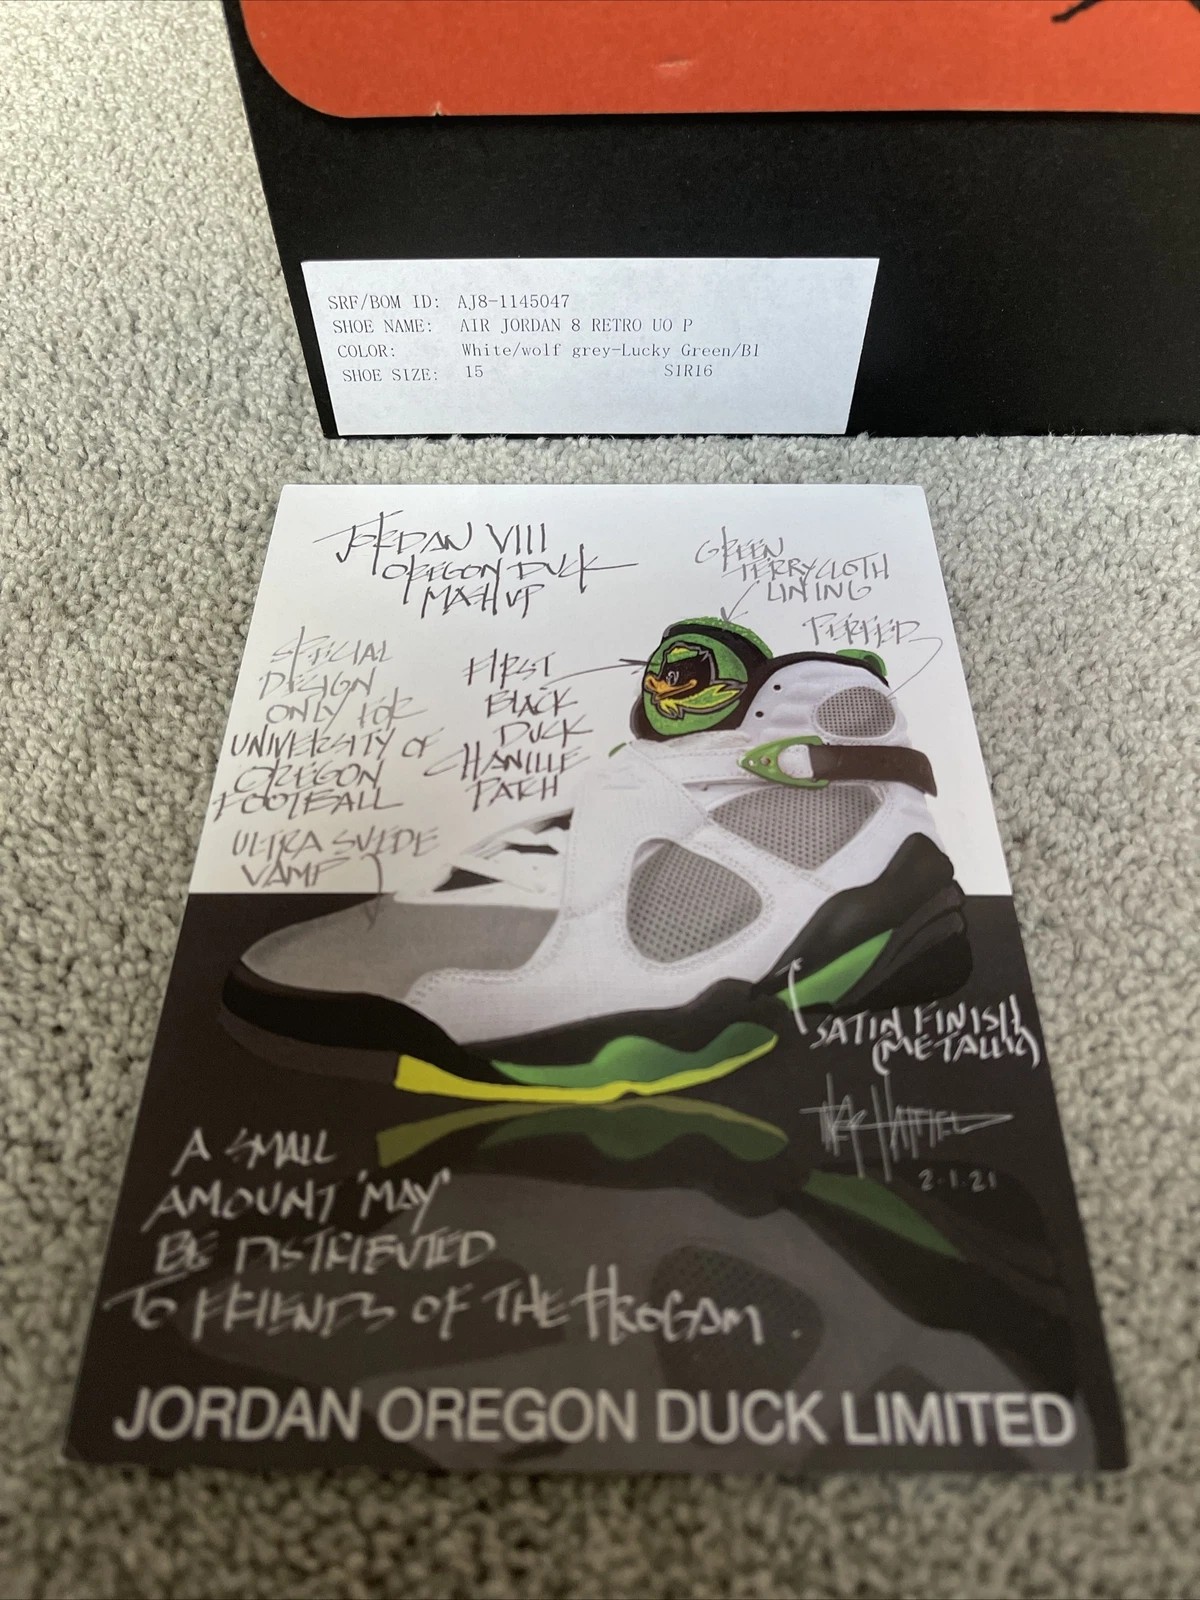 SRF/BOM ID: AJ8-1145047
SHOE NAME: AIR JORDAN 8 RETRO UO P
COLOR: White/wolf grey-Lucky Green/Bl
SHOE SIZE: 15 S1R16
JORDAN VIII
OREGON DUCK
MASH UP
GREEN
TERRYCLOTH
LINING
PERFED
SPECIAL
DESIGN
ONLY FOR
UNIVERSITY OF
OREGON
FOOTBALL
FIRST
BLACK
DUCK
CHANILLE
PATCH
ULTRA SUEDE
VAMP
SATIN FINISH
(METALLIC)
TINKER HATFIELD
2-1-21
A SMALL
AMOUNT 'MAY'
BE DISTRIBUTED
TO FRIENDS OF THE PROGRAM
JORDAN OREGON DUCK LIMITED